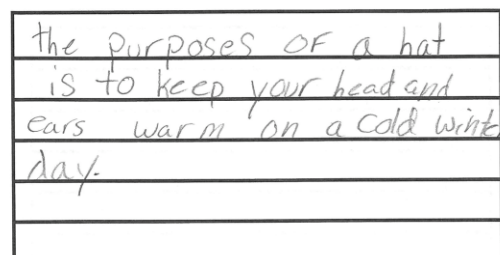 the purposes OF a hat
is to keep your head and
ears warm on a cold wint
day.